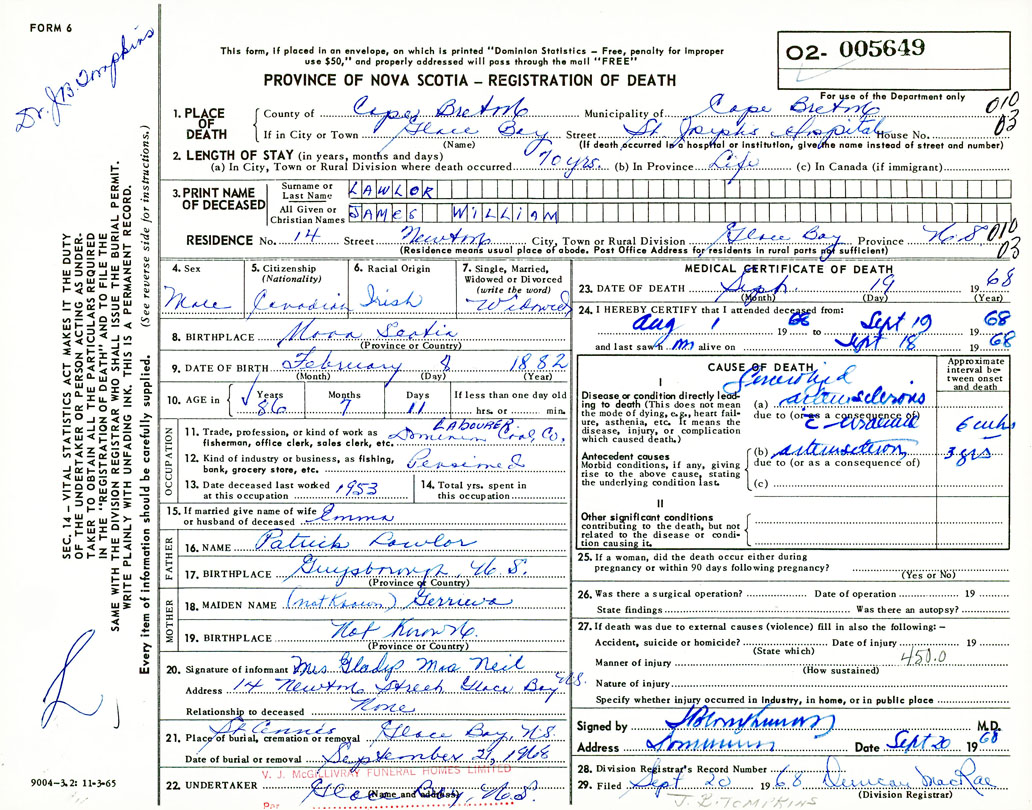 FORM 6
Dr. J B Tompkins
This form, if placed in an envelope, on which is printed "Dominion Statistics – Free, penalty for improper
use $50," and properly addressed will pass through the mail "FREE"
PROVINCE OF NOVA SCOTIA – REGISTRATION OF DEATH
02- 005649
For use of the Department only
010
03
1. PLACE OF DEATH
County of Cape Breton Municipality of Cape Breton
If in City or Town Glace Bay Street St Josephs Hospital House No.
(Name) (If death occurred in a hospital or institution, give the name instead of street and number)
2. LENGTH OF STAY (in years, months and days)
(a) In City, Town or Rural Division where death occurred 70 yrs. (b) In Province Life (c) In Canada (if immigrant)
3. PRINT NAME OF DECEASED
Surname or Last Name LAWLOR
All Given or Christian Names JAMES WILLIAM
RESIDENCE No. 14 Street Newton City, Town or Rural Division Glace Bay Province N.S 010
03
(Residence means usual place of abode. Post Office Address for residents in rural parts not sufficient)
4. Sex
Male
5. Citizenship
(Nationality)
Canadian
6. Racial Origin
Irish
7. Single, Married,
Widowed or Divorced
(write the word)
Widowed
8. BIRTHPLACE Nova Scotia
(Province or Country)
9. DATE OF BIRTH February 8 1882
(Month) (Day) (Year)
10. AGE in Years Months Days If less than one day old
86 7 11 hrs. or min.
OCCUPATION
LABOURER
11. Trade, profession, or kind of work as Dominion Coal Co.
fisherman, office clerk, sales clerk, etc.
12. Kind of industry or business, as fishing, Pensioned
bank, grocery store, etc.
13. Date deceased last worked 1953
at this occupation
14. Total yrs. spent in
this occupation
15. If married give name of wife Emma
or husband of deceased
FATHER
16. NAME Patrick Lawlor
17. BIRTHPLACE Guysborough, N.S.
(Province or Country)
MOTHER
18. MAIDEN NAME (not known)
19. BIRTHPLACE Not Known
(Province or Country)
20. Signature of informant Mrs Gladys Mac Neil
Address 14 Newton Street Glace Bay N.S.
Relationship to deceased None
21. Place of burial, cremation or removal St Anne's Glace Bay, N.S.
Date of burial or removal September 21, 1968
V. J. McGILLIVRAY FUNERAL HOMES LIMITED
22. UNDERTAKER Glace Bay, N.S.
(Name and address)
Per
MEDICAL CERTIFICATE OF DEATH
23. DATE OF DEATH Sept. 19 1968
(Month) (Day) (Year)
24. I HEREBY CERTIFY that I attended deceased from:
Aug 1 1968 to Sept 19 1968
and last saw him alive on Sept 18 1968
CAUSE OF DEATH
Approximate
interval be-
tween onset
and death
I
Generalized
Disease or condition directly lead-
ing to death (This does not mean
the mode of dying, e.g., heart fail-
ure, asthenia, etc. It means the
disease, injury, or complication
which caused death.)
(a) arteriosclerosis
due to (or as a consequence of)
6 wks
Antecedent causes
Morbid conditions, if any, giving
rise to the above cause, stating
the underlying condition last.
(b)
3 yrs
due to (or as a consequence of)
(c)
II
Other significant conditions
contributing to the death, but not
related to the disease or condi-
tion causing it.
25. If a woman, did the death occur either during
pregnancy or within 90 days following pregnancy?
(Yes or No)
26. Was there a surgical operation? Date of operation 19
State findings Was there an autopsy?
27. If death was due to external causes (violence) fill in also the following: –
Accident, suicide or homicide? Date of injury 19
(State which)
450.0
Manner of injury
(How sustained)
Nature of injury
Specify whether injury occurred in industry, in home, or in public place
Signed by M.D.
Address Dominion Date Sept 20 1968
28. Division Registrar's Record Number
29. Filed Sept 20 1968 Duncan MacRae
(Division Registrar)
J. B. TOMPKINS
SEC. 14 – VITAL STATISTICS ACT MAKES IT THE DUTY
OF THE UNDERTAKER OR PERSON ACTING AS UNDER-
TAKER TO OBTAIN ALL THE PARTICULARS REQUIRED
IN THE "REGISTRATION OF DEATH" AND TO FILE THE
SAME WITH THE DIVISION REGISTRAR WHO SHALL ISSUE THE BURIAL PERMIT.
WRITE PLAINLY WITH UNFADING INK. THIS IS A PERMANENT RECORD.
Every item of information should be carefully supplied. (See reverse side for instructions.)
9004–3.2: 11-3-65